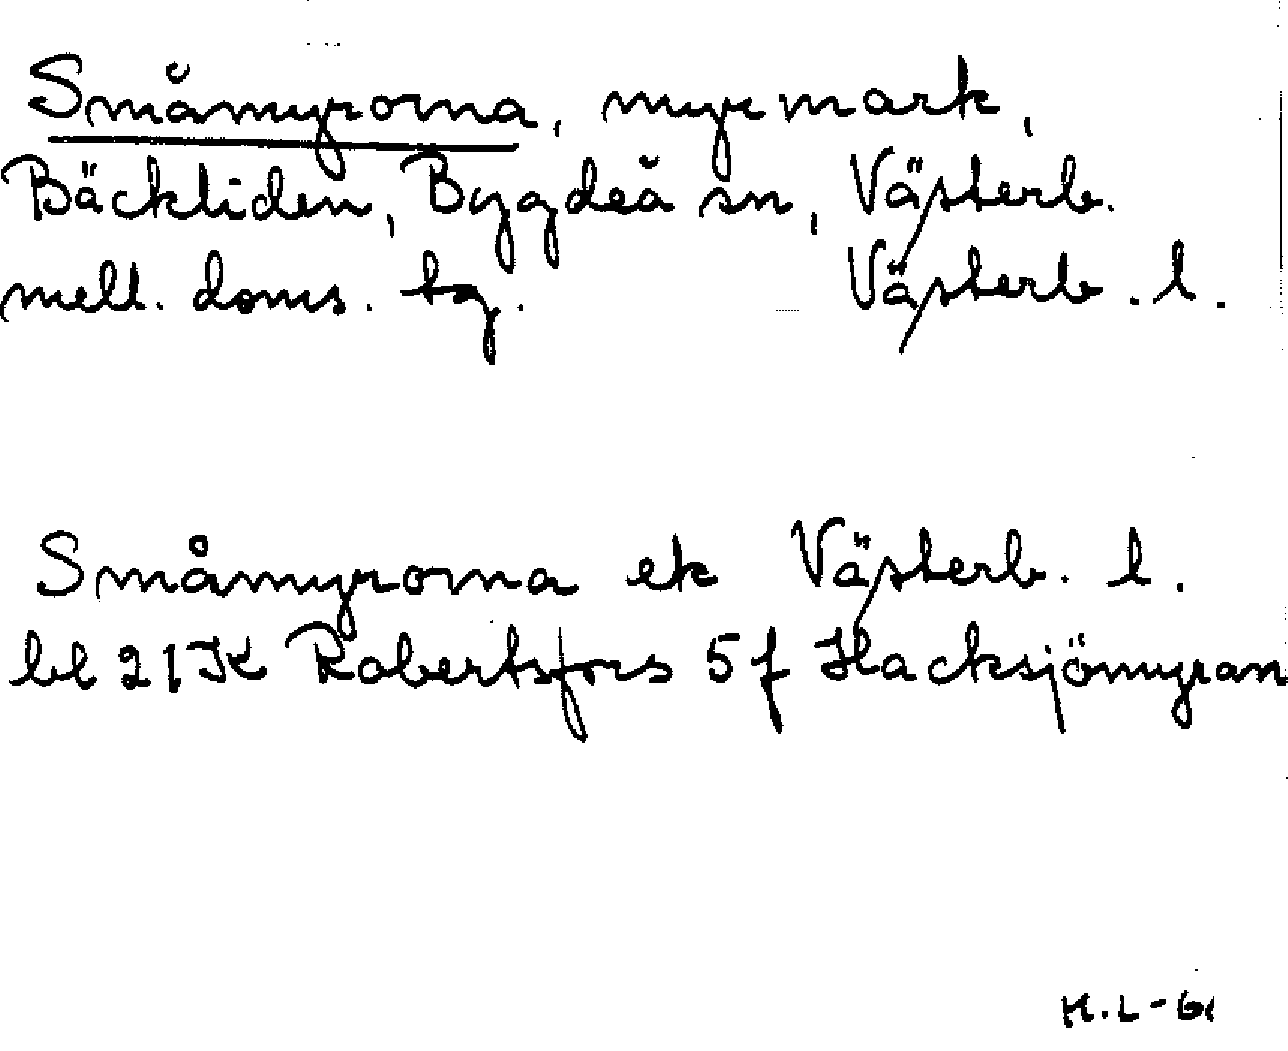 Småmyrorna, myrmark,
Bäckliden, Bygdeå sn, Västerb.
mell. doms. tg. Västerb. l.
Småmyrorna ek Västerb. l.
bl 21 K Robertsfors 5 f Hacksjömyran
H.L-61